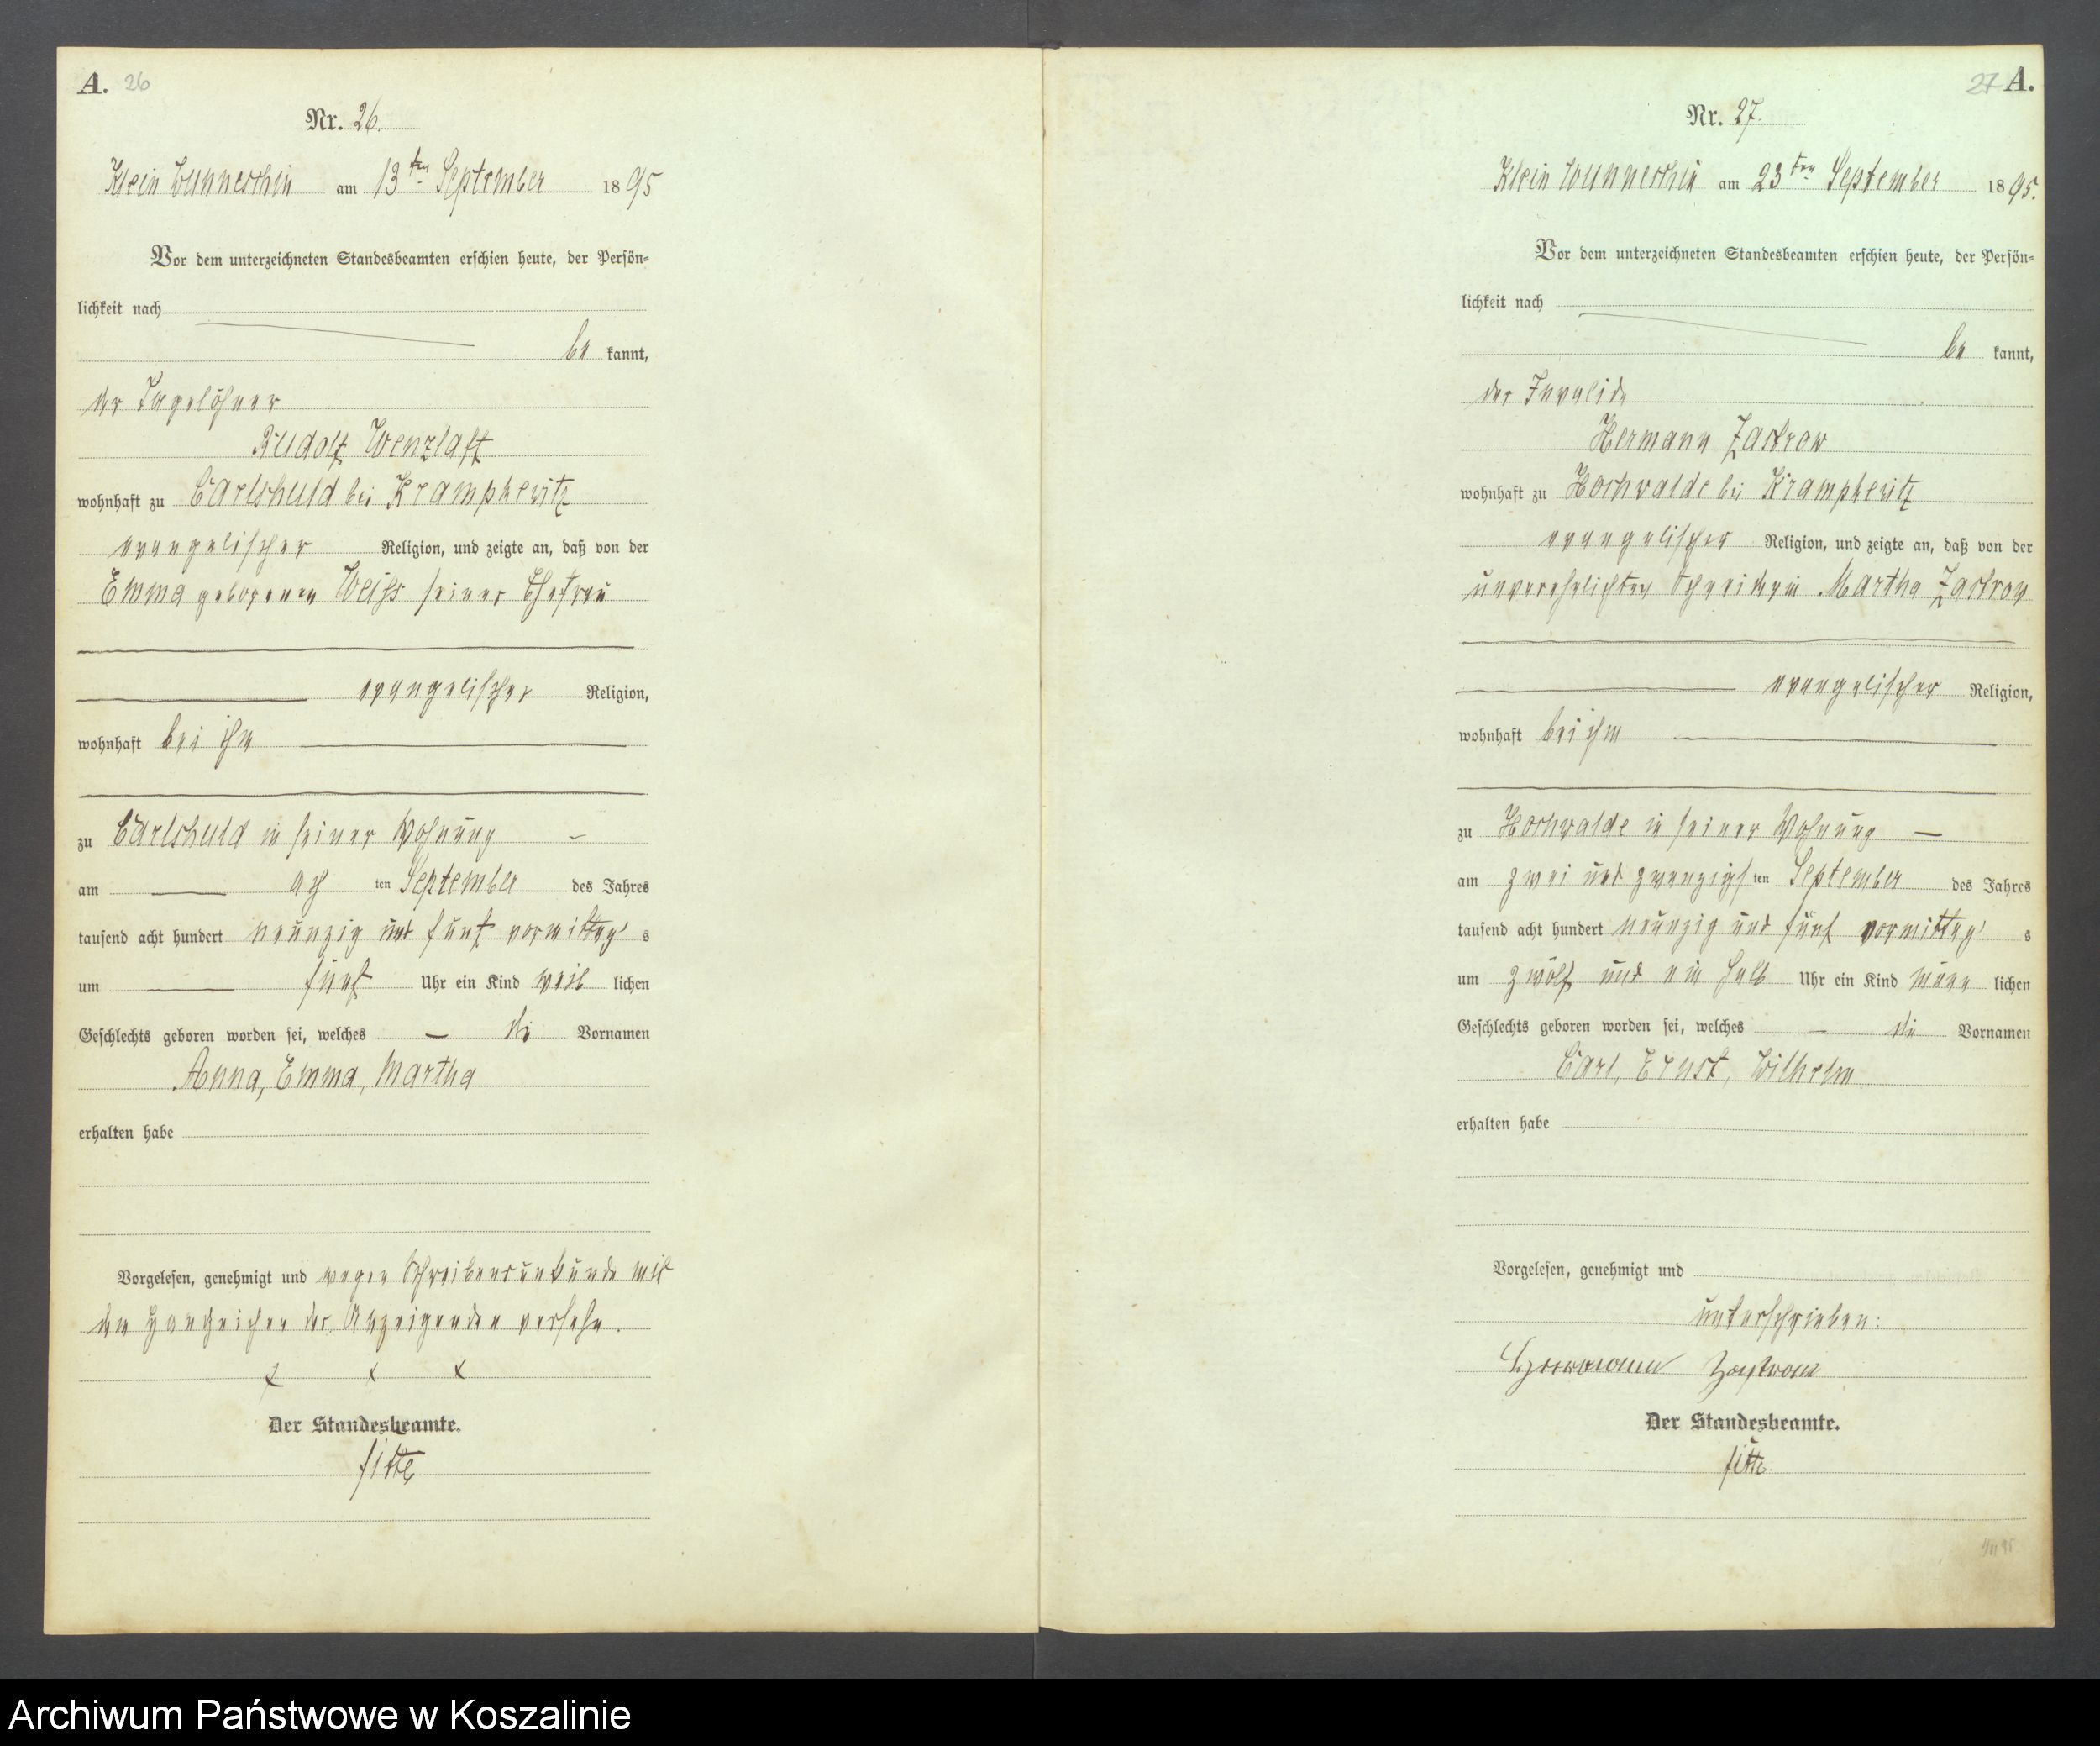 A. 26
Nr. 26.
Klein Wunneschin am 13ten September 1895
Vor dem unterzeichneten Standesbeamten erschien heute, der Persön=
lichkeit nach
be kannt,
der Tagelöhner
Rudolf Wenzlaff
wohnhaft zu Carlshuld bei Krampkewitz
evangelischer Religion, und zeigte an, daß von der
Emma geborenen Weiss seiner Ehefrau
evangelischer Religion,
wohnhaft bei ihm
zu Carlshuld in seiner Wohnung
am ach ten September des Jahres
tausend acht hundert neunzig und fünf vormittag s
um fünf Uhr ein Kind weib lichen
Geschlechts geboren worden sei, welches die Vornamen
Anna, Emma, Martha
erhalten habe
Vorgelesen, genehmigt und wegen Schreibensunkunde mit
dem Handzeichen des Anzeigenden versehn.
x x x
Der Standesbeamte.
27 A.
Nr. 27.
Klein Wunneschin am 23ten September 1895.
Vor dem unterzeichneten Standesbeamten erschien heute, der Persön=
lichkeit nach
be kannt,
der Invalide
Hermann Zastrow
wohnhaft zu Hochwalde bei Krampkewitz
evangelischer Religion, und zeigte an, daß von der
unverehelichten Schneiderin Martha Zastrow
evangelischer Religion,
wohnhaft bei ihm
zu Hochwalde in seiner Wohnung
am zwei und zwanzigs ten September des Jahres
tausend acht hundert neunzig und fünf vormittag s
um zwölf und ein halb Uhr ein Kind männ lichen
Geschlechts geboren worden sei, welches die Vornamen
Carl, Ernst, Wilhelm
erhalten habe
Vorgelesen, genehmigt und
unterschrieben:
Herrmann Zastrow
Der Standesbeamte.
Archiwum Państwowe w Koszalinie